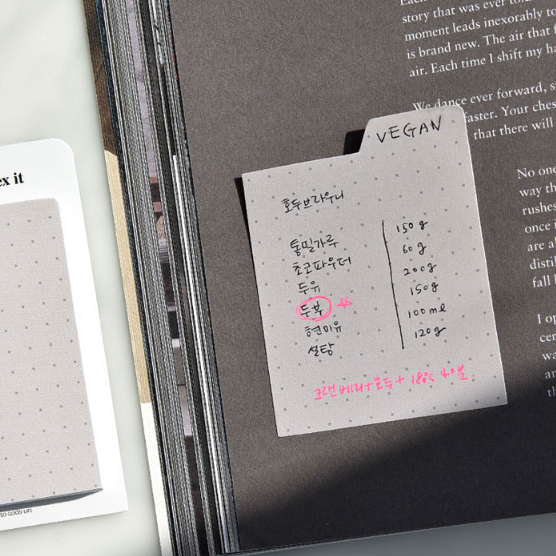 ex it
SO GOOD LIFE
story that was ever to
moment leads inexorably to
is brand new. The air that
air. Each time I shift my ha
We dance ever forward, s
faster. Your ches
that there will
No one
way th
rushes
once
are a
distil
fall
I o
cer
wa
ar
th
VEGAN
호두브라우니
통밀가루 150g
초코파우더 60g
두유 200g
두부 150g
현미유 100ml
설탕 120g
크랜베리+호두+ 180℃ 40분.